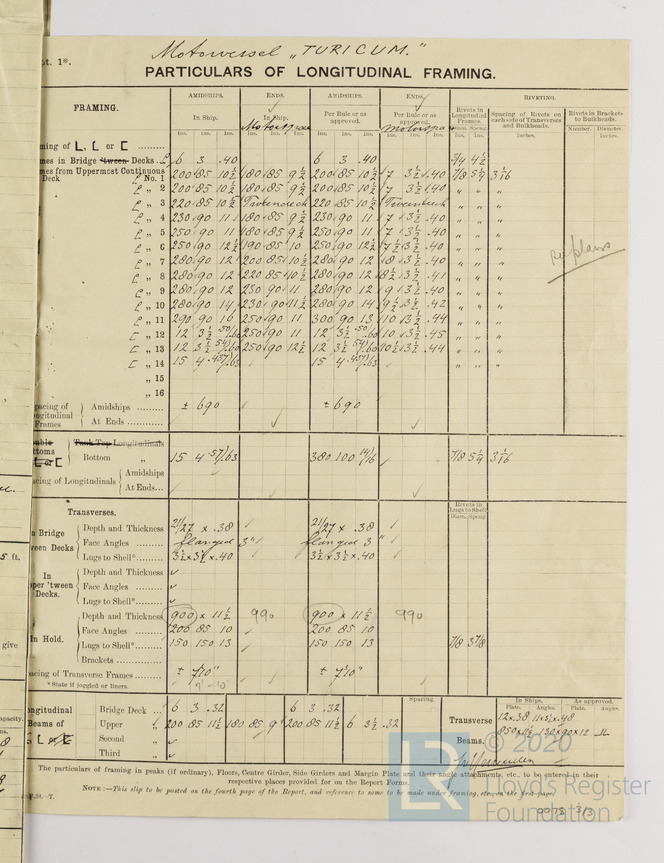 Motorvessel „TURICUM."
pt. 1*.
PARTICULARS OF LONGITUDINAL FRAMING.
FRAMING.
AMIDSHIPS. ENDS. AMIDSHIPS. ENDS. RIVETING.
In Ship. In Ship. Per Rule or as approved. Per Rule or as approved.
Rivets in Longitudinal Frames. Spacing of Rivets on each side of Transverses and Bulkheads. Rivets in Brackets to Bulkheads.
Ins. Ins. Ins. Ins. Ins. Ins. Ins. Ins. Ins. Ins. Ins. Ins. Diam. Spcng Inches. Number. Diameter. Inches.
ming of L, L or [ ..........
mes in Bridge 'tween Decks 6 3 .40 6 3 .40 3/4 4½
mes from Uppermost Continuous
Deck No. 1 200 85 10½ 180 85 9½ 200 85 10½ 7 3½ .40 7/8
„ 2 200 85 10½ 180 85 9½ 200 85 10½ 7 3½ .40 „ „ „
„ 3 220 85 10½ Tweendeck 220 85 10½ Tweendeck „ „ „
„ 4 230 90 11 180 85 9½ 230 90 11 7 3½ .40 „ „ „
„ 5 250 90 11 180 85 9½ 250 90 11 7 3½ .40 „ „ „
„ 6 250 90 12½ 190 85 10 250 90 12½ 7½ 3½ .40 „ „ „
„ 7 280 90 12 200 85 10½ 280 90 12 8 3½ .40 „ „ „
„ 8 280 90 12 220 85 10½ 280 90 12 8½ 3½ .41 „ „ „
„ 9 280 90 12 230 90 11 280 90 12 9 3½ .40 „ „ „
„ 10 280 90 14 230 90 11½ 280 90 14 9½ 3½ .42 „ „ „
„ 11 290 90 16 250 90 11 300 90 13 10 3½ .44 „ „ „
„ 12 12 3½ .50/.60 250 90 11 12 3½ .50/.60 10 3½ .45 „ „ „
„ 13 12 3½ .54/.60 250 90 12½ 12 3½ .54/.60 10½ 3½ .44 „ „ „
„ 14 15 4 15 4 „ „ „
„ 15
„ 16
pacing of Longitudinal Frames
Amidships .......... ± 690 ± 690
At Ends ..........
ouble
ttoms
L or [
Tank Top Longitudinals
Bottom „ 15 4 .57/.63 380 100 14/16 7/8
cing of Longitudinals
Amidships
At Ends...
Transverses.
Rivets in Lugs to Shell
Diam. Spcng
n Bridge
een Decks
Depth and Thickness × .38 × .38
Face Angles ......... flanged 3" flanged 3"
Lugs to Shell*......... 3½ × 3½ × .40 3½ × 3½ × .40
In
per 'tween
Decks.
Depth and Thickness
Face Angles .........
Lugs to Shell*.........
In Hold.
Depth and Thickness 900 × 11½ 990 900 × 11½ 990
Face Angles ......... 200 85 10 200 85 10
Lugs to Shell*......... 150 150 13 150 150 13 7/8
Brackets ..........
acing of Transverse Frames........... ± 7'10" ± 7'10"
* State if joggled or liners.
Spacing. In Ships. As approved.
Plate. Angles. Plate. Angles.
ongitudinal
Beams of
Bridge Deck ... 6 3 .32 6 3 .32
Upper „ 200 85 11½ 180 85 9½ 200 85 11½ 6 3½ .32
Second „
Third „
Transverse Beams.
850 × 11½ 130 × 90 × 12
The particulars of framing in peaks (if ordinary), Floors, Centre Girder, Side Girders and Margin Plate and their angle attachments, etc., to be entered in their
respective places provided for on the Report Forms.
NOTE:—This slip to be posted on the fourth page of the Report, and reference to same to be made under framing, etc., on the first page.
5 ft.
give
apacity.
© 2020
LR
Lloyd's Register
Foundation